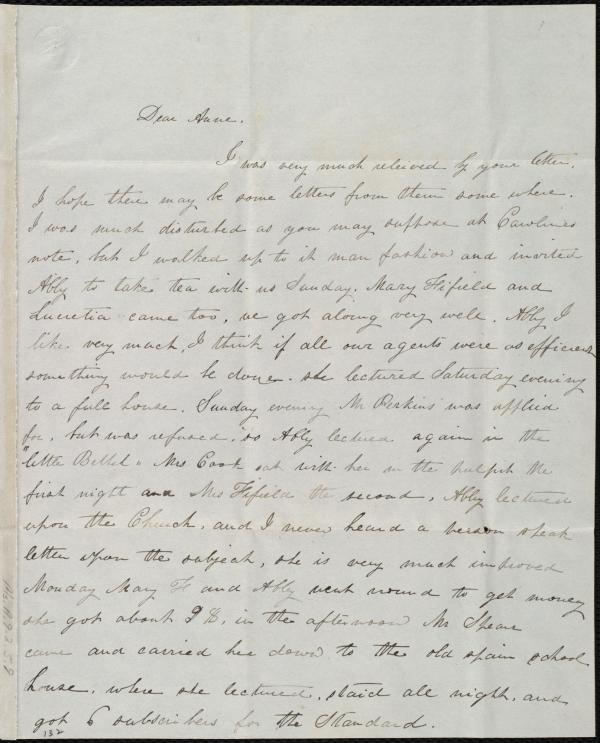 Dear Anne.
I was very much releived by your letter.
I hope there may be some letters from them some where.
I was much disturbed as you may suppose at Carolines
note, but I walked up to it man fashion and invited
Abby to take tea with us Sunday. Mary Fifield and
Lucretia came too, we got along very well. Abby I
like very much, I think if all our agents were as efficient
something would be done. she lectured Saturday evening
to a full house. Sunday evening Mr Perkins was applied
for, but was refused, so Abby lectured again in the
"little Bethel" Mrs Cook sat with her in the pulpit the
first night and Mrs Fifield the second, Abby lectured
upon the Church, and I never heard a person speak
better upon the subject, she is very much improved
Monday Mary F and Abby went round to get money
she got about 9 D, in the afternoon Mr Spear
came and carried her down to the old spain school
house, where she lectured, staid all night, and
got 6 subscribers for the Standard.
132